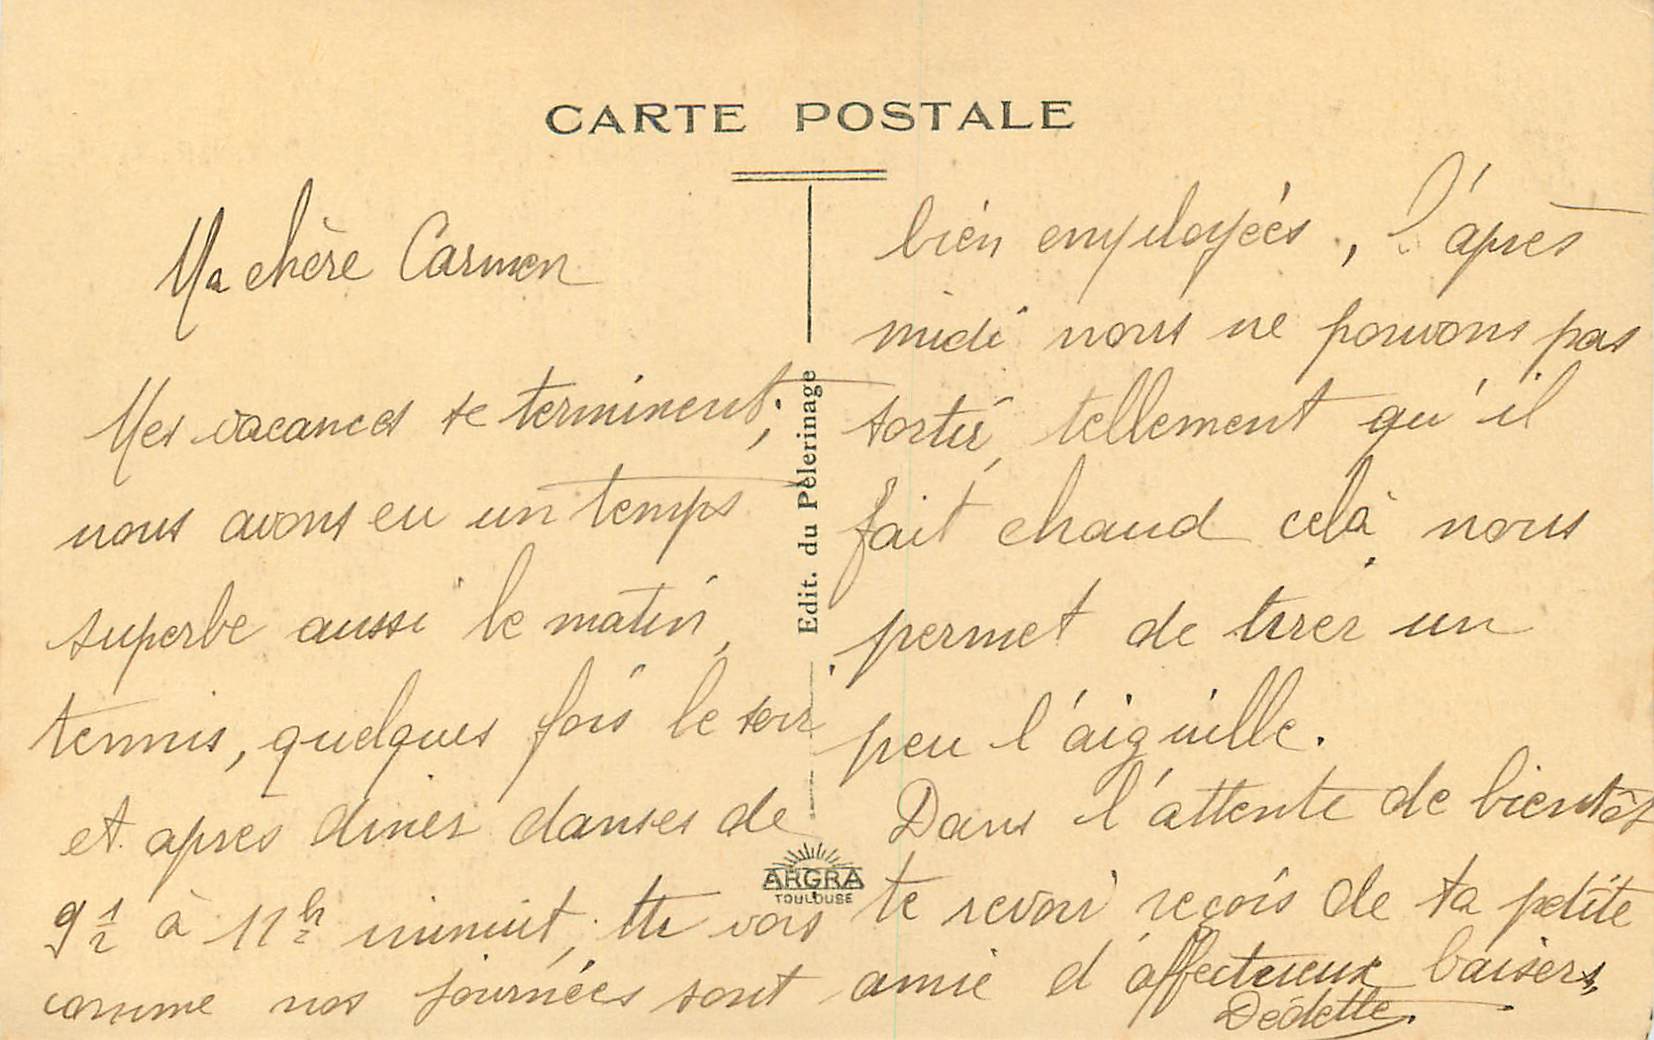 CARTE POSTALE
Ma chère Carmen
Mes vacances se terminent;
nous avons eu un temps
superbe aussi le matin,
tennis, quelques fois le soir
et après diner danses de
9 1/2 à 11h minuit, tu vois
comme nos journées sont
Edit. du Pèlerinage
ARGRA
TOULOUSE
bien employées, l'après
midi nous ne pouvons pas
sortir, tellement qu'il
fait chaud celà nous
permet de tirer un
peu l'aiguille.
Dans l'attente de bientôt
te revoir reçois de ta petite
amie d'affectueux baisers,
Dédette.